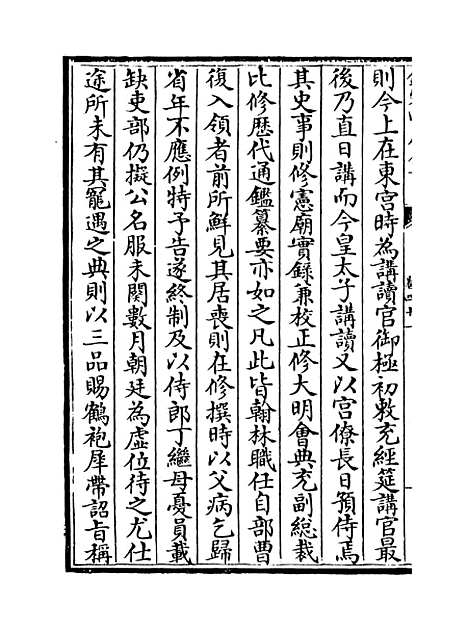 則今上在東宮時為講讀官御極初敕充經筵講官最
後乃直日講而今皇太子講讀又以宮僚長日預侍焉
其史事則修憲廟實錄兼校正修大明會典充副總裁
比修歷代通鑑纂要亦如之凡此皆翰林職任自部曹
復入領者前所鮮見其居喪則在修撰時以父病乞歸
省年不應例特予告遂終制及以侍郎丁繼母憂員載
缺吏部仍擬公名服未闋數月朝廷為虛位待之尤仕
途所未有其寵遇之典則以三品賜鶴袍犀帶詔旨稱